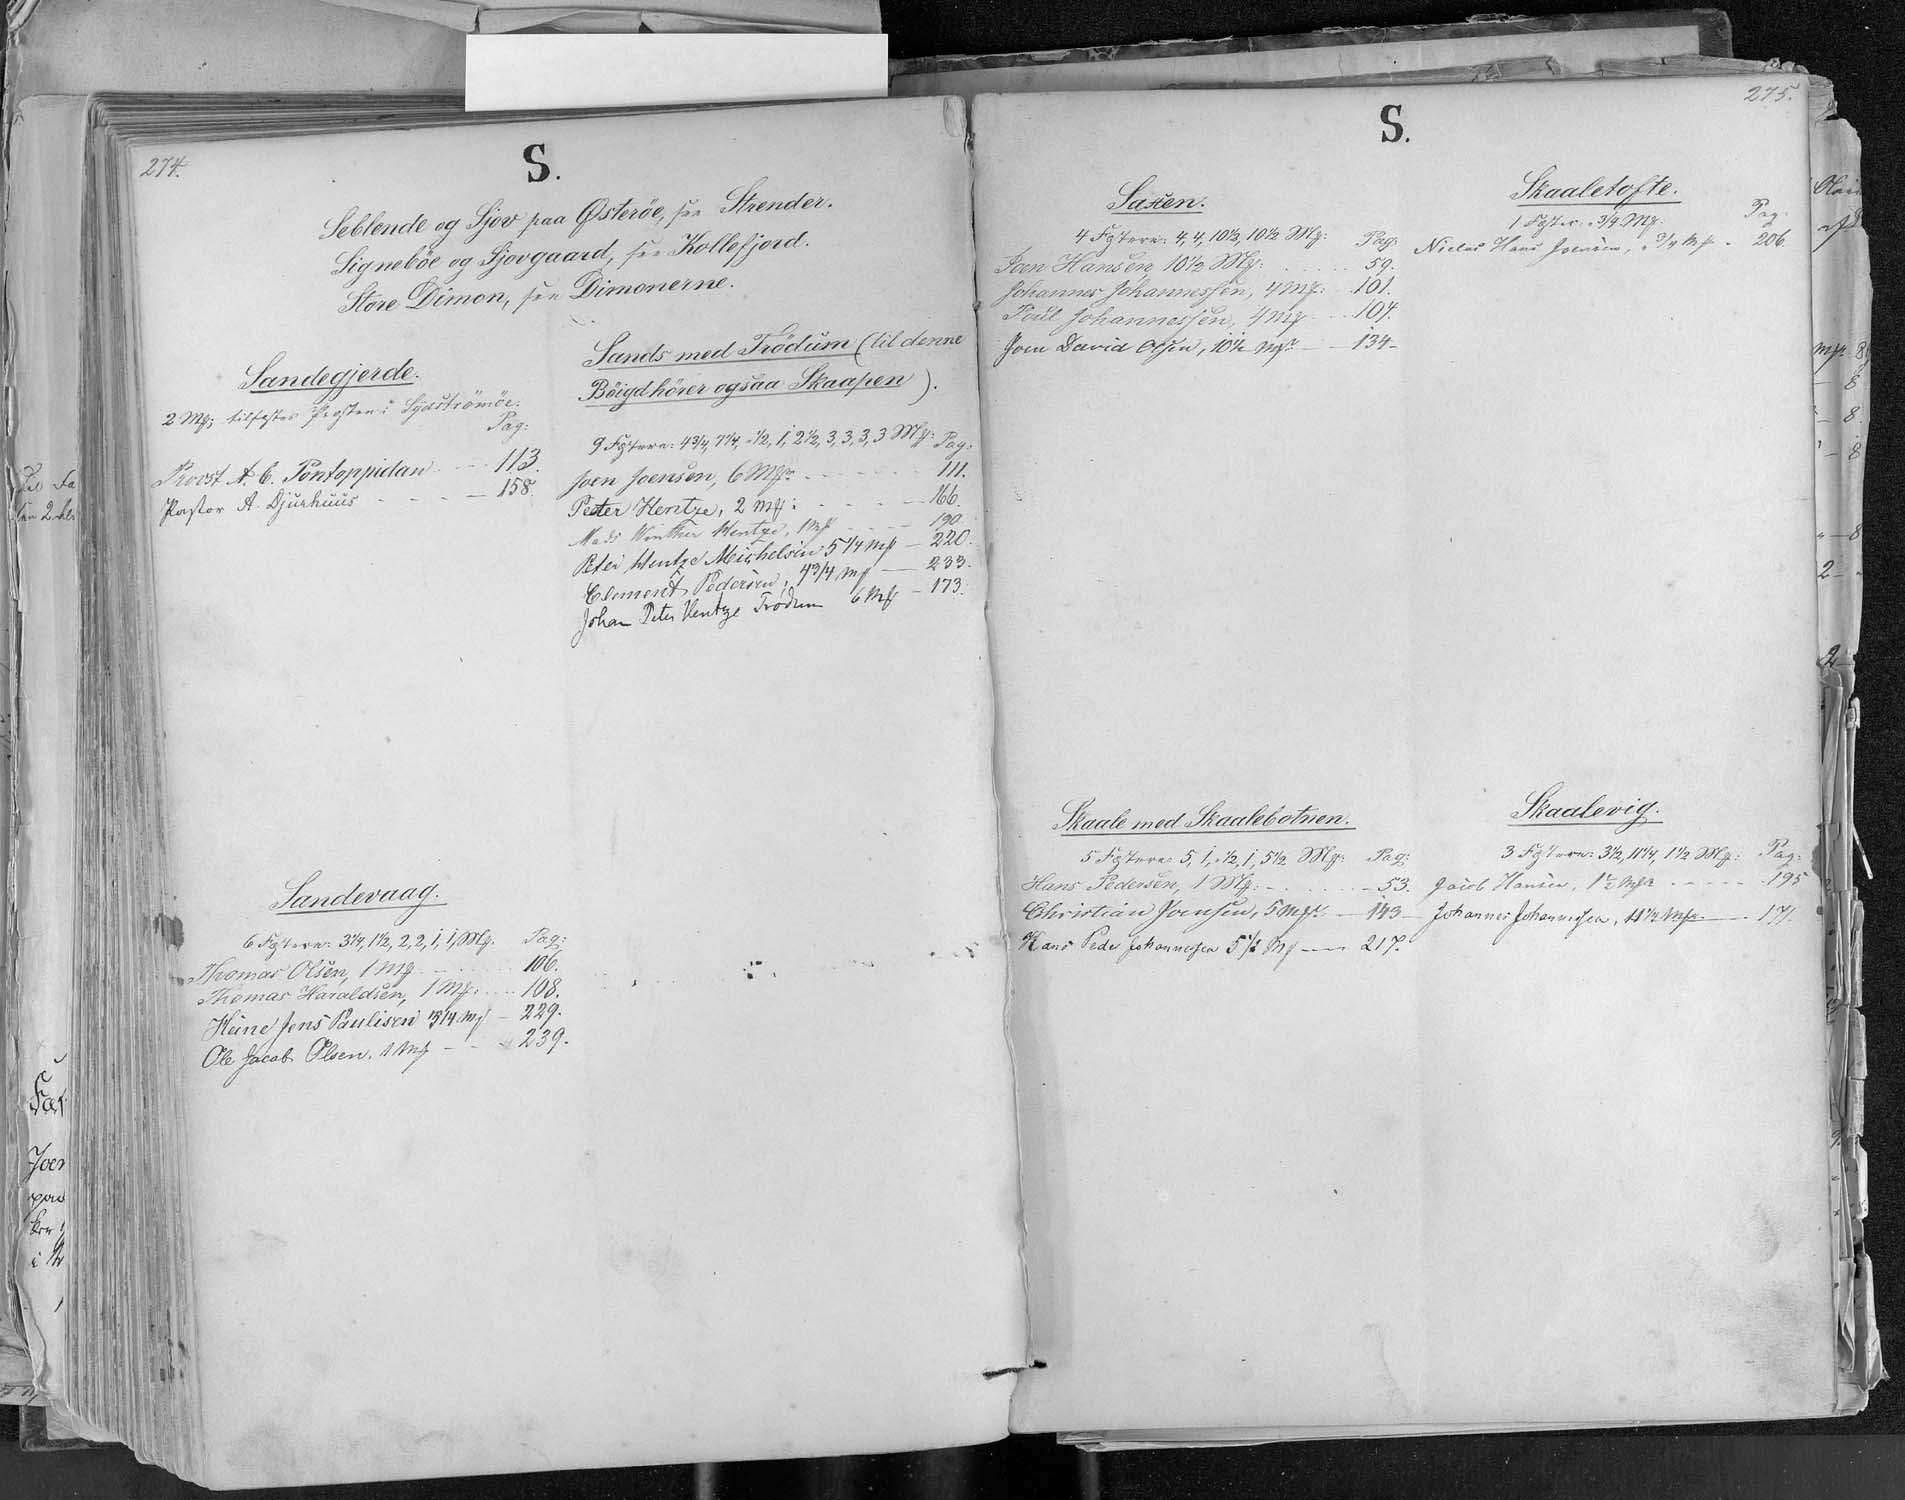 274.
S.
Seblende og Sjov paa Østeröe, see Strender.
Signeböe og Sjovgaard, see Kollefjord.
Store Dimon, see Dimonerne.
Sandegjerde.
2 Mf; tilfæstes Provsten i Syderströmöe:
Pag:
Provst A. C. Pontoppidan - - - 113.
Pastor A. Djurhuus - - - - 158.
Sands med Trödum (til denne
Böigd hörer ogsaa Skaapen).
9 Fæstere: 4 3/4, 7 1/4, 1/2, 1, 2 1/2, 3, 3, 3, 3 Mf: Pag:
Joen Joensen, 6 Mf - - - - - 111.
Peter Hentze, 2 Mf: - - - - 166.
Mads Winther Hentze, 1 Mf - - - - 190.
Peter Hentze Michelsen 5 1/4 Mf - 220.
Clement Pedersen, 4 3/4 Mf - 233.
Johan Peter Hentze Trödum 6 Mf - 173.
Sandevaag.
6 Fæstere: 3 1/4, 1 1/2, 2, 2, 1, 1, Mf. Pag:
Thomas Olsen, 1 Mf - - - - 106.
Thomas Haraldsen, 1 Mf: - - - 108.
Heine Jens Paulisen 3 1/4 Mf - 229.
Ole Jacob Olsen. 1 Mf - - - 239.
275.
S.
Saxen.
4 Fæstere: 4, 4, 10 1/2, 10 1/2 Mf: Pag:
Joen Hansen, 10 1/2 Mf: - - - - 59.
Johannes Johannessen, 4 Mf: - 101.
Poul Johannessen, 4 Mf - - - 104.
Joen David Olsen, 10 1/2 Mf - - 134-
Skaaletofte.
1 Fæster. 3/4 Mf: Pag:
Niclas Hans Joensen, 3/4 Mf - 206.
Skaale med Skaalebotnen.
5 Fæstere: 5, 1, 1/2, 1, 5 1/2 Mf: Pag:
Hans Pedersen, 1 Mf: - - - - - 53.
Christian Joensen, 5 Mf - 143-
Hans Peder Johannessen 5 1/2 Mf - 217.
Skaalevig.
3 Fæstere: 3 1/2, 11 1/4, 1 1/2 Mf: Pag:
Jacob Hansen, 1 1/2 Mf - - - - - 195
Johannes Johannessen, 11 1/4 Mf - - 171.